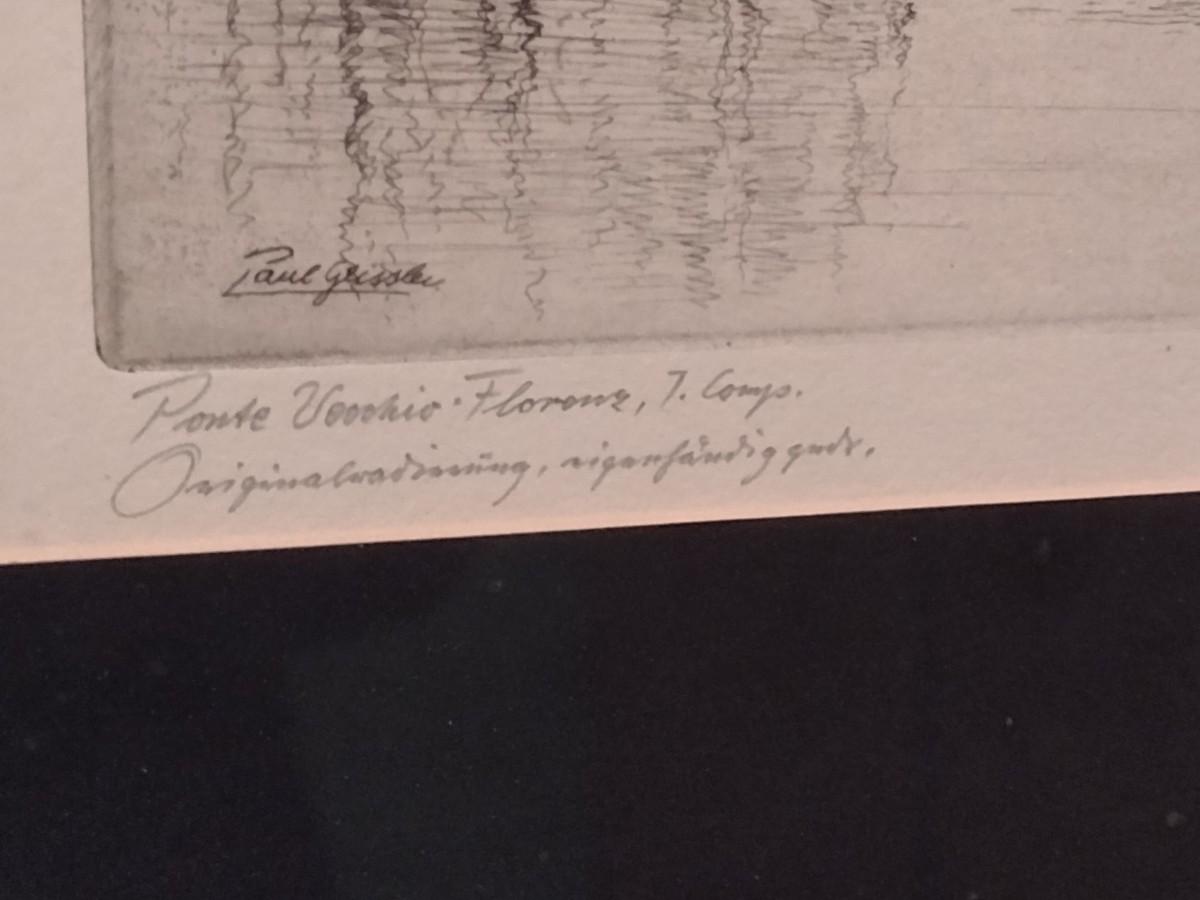 Paul Geissler
Ponte Vecchio · Florenz, I. Comp.
Originalradierung, eigenhändig gedr.